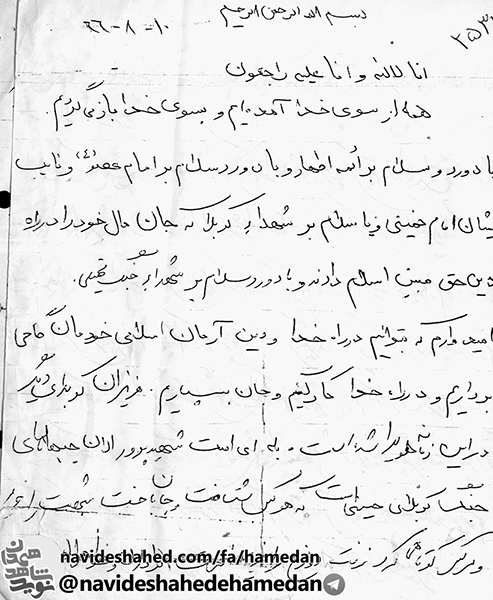 بسم الله الرحمن الرحیم
۶۶-۸-۱۰
۲۵۳
انا لله و انا علیه راجعون
همه از سوی خدا آمده‌ایم و بسوی خدا باز می‌گردیم.
با درود و سلام بر ائمه اطهار و با درود و سلام بر امام عصر (ع) و نایب
ایشان امام خمینی و با سلام بر شهدای کربلا که جان و مال خود را در راه
دین حق مبین اسلام دادند و با درود و سلام بر شهدای جنگ تحمیلی.
امیدوارم که بتوانیم در راه خدا و دین آرمان اسلامی خودمان گامی
برداریم و در راه خدا کار کنیم و جان بسپاریم. عزیزان کربلای دیگر
در این زمانه هویدا شده است. بله ای امت شهید پرور ایران جبهه‌های
جنگ کربلای حسینی است که هر کس شتافت و جانباخت شهید است
و هر کس کوتاهی کرد
navideshahed.com/fa/hamedan
@navideshahedehamedan
نوید شاهد همدان